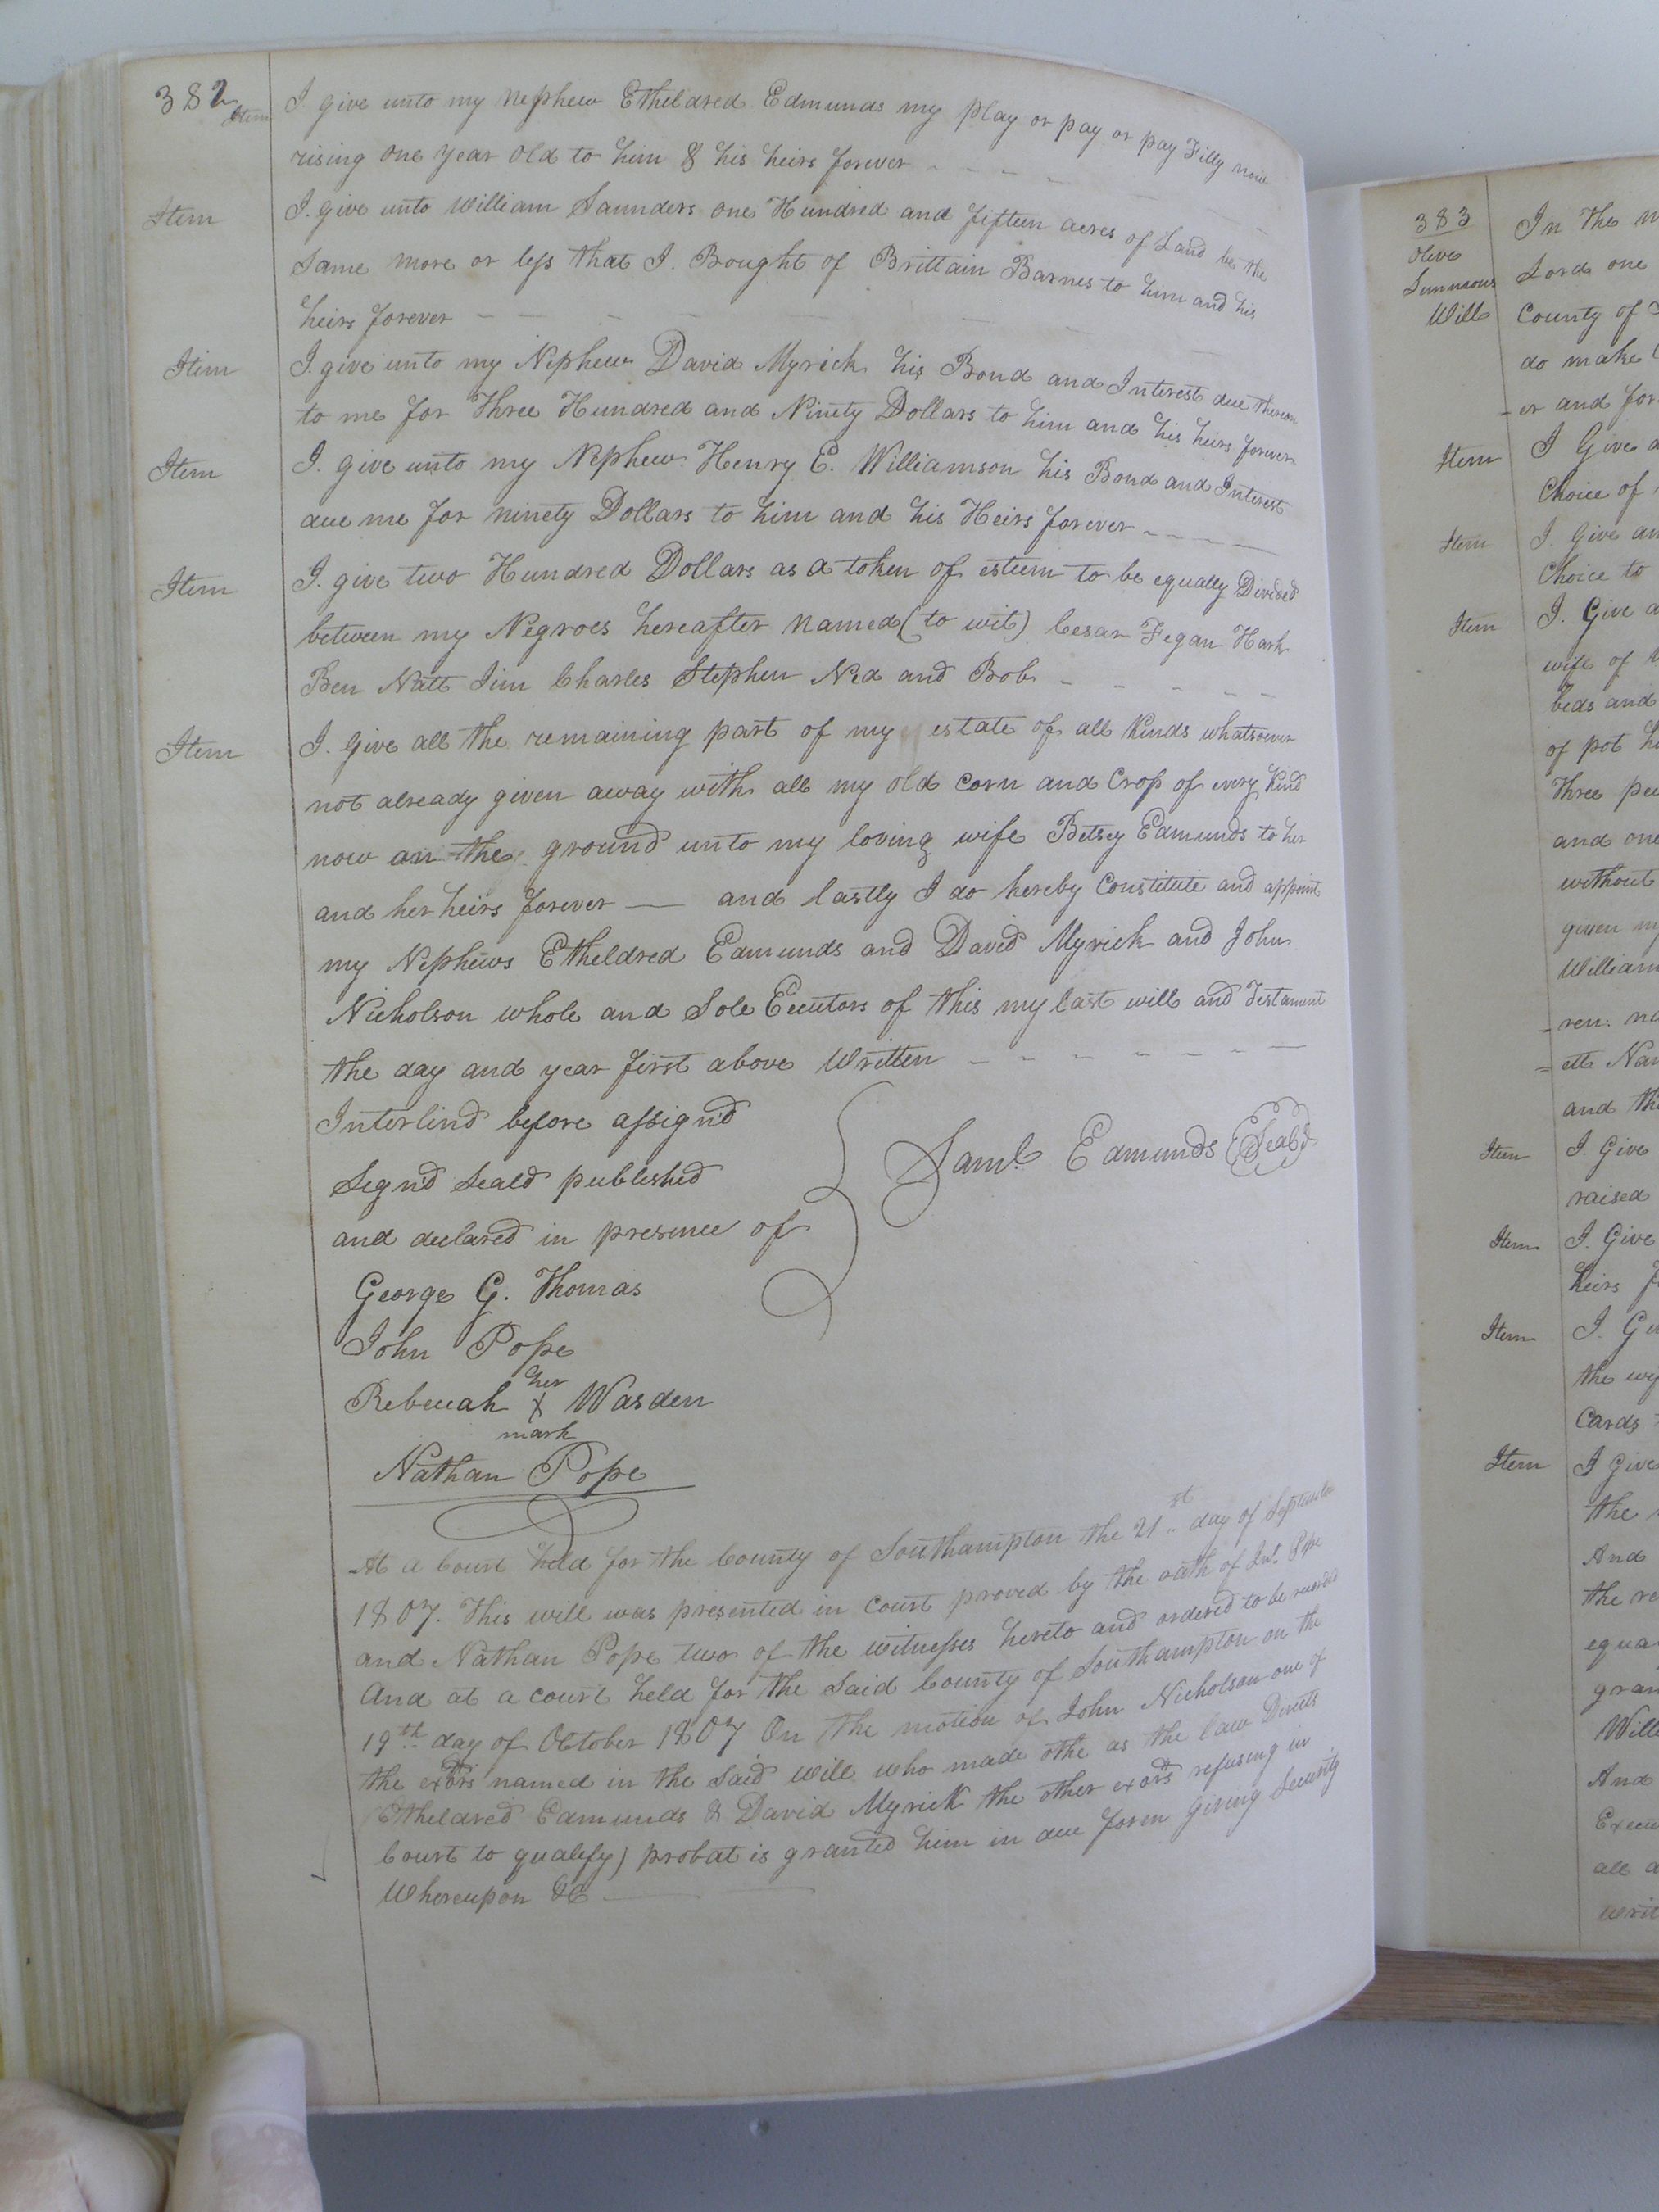 382
Item I give unto my Nephew Etheldred Edmunds my play or pay or pay Filly now
rising one year old to him & his heirs forever
Item I give unto William Saunders one Hundred and fifteen acres of Land be the
Same more or less that I Bought of Brittain Barnes to him and his
heirs forever
Item I give unto my Nephew David Myrick his Bond and Interest due thereon
to me for Three Hundred and Ninety Dollars to him and his heirs forever
Item I give unto my Nephew Henry E. Williamson his Bond and Interest
due me for ninety Dollars to him and his Heirs forever
Item I give two Hundred Dollars as a token of esteem to be equally Divided
between my Negroes hereafter named (to wit) Cesar Fegan Hark
Ben Natt Jim Charles Stephen Ned and Bob
Item I Give all the remaining part of my estate of all Kinds whatsoever
not already given away with all my old corn and Crop of every Kind
now on the ground unto my loving wife Betsey Edmunds to her
and her heirs forever — and lastly I do hereby Constitute and appoint
my Nephews Etheldred Edmunds and David Myrick and John
Nicholson whole and Sole Eecutors of this my last will and Testament
the day and year first above Written
Interlind before assign'd
Sign'd Seald published
and declared in presence of
Saml. Edmunds (Seal)
George G. Thomas
John Pope
her
Rebecah X Wasden
mark
Nathan Pope
At a Court held for the County of Southampton the 21st day of September
1807. This will was presented in Court proved by the oath of Jno. Pope
and Nathan Pope two of the witnesses hereto and ordered to be recorded
And at a court held for the Said County of Southampton on the
19th day of October 1807 On the motion of John Nicholson one of
the exors named in the Said Will who made othe as the law Directs
(Etheldred Edmunds & David Myrick the other exors refusing in
Court to qualify) probat is granted him in due form Giving Security
Whereupon &c
383
Will
In the
Lord one
County of
do make
-er and for
Item I Give
Choice of
Item I Give an
Choice to
Item I Give a
wife of
beds and
of pot
Three
and one
without
given my
William
-ren.
and
Item I Give
raised
Item I Give
heirs
Item I
the
Cards
Item I Give
the
And
the
And
all